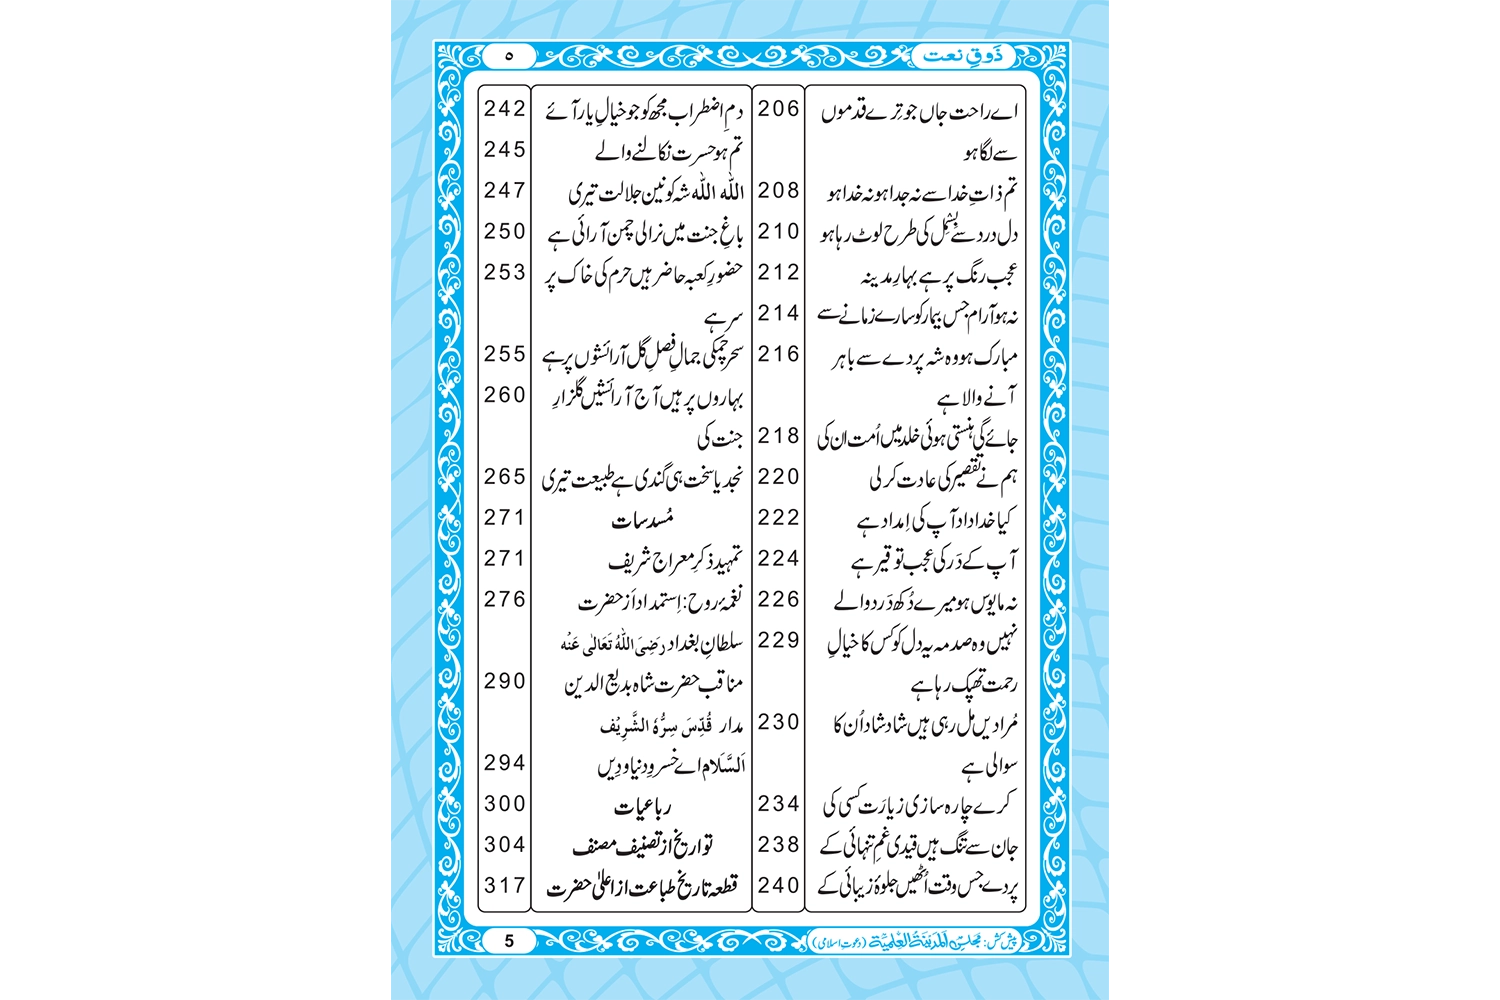 ذَوقِ نعت
۵
اے راحت جاں جو تِرے قدموں 206
سے لگا ہو
تم ذاتِ خدا سے نہ جدا ہو نہ خدا ہو 208
دل درد سے بسمل کی طرح لوٹ رہا ہو 210
عجب رنگ پر ہے بہارِ مدینہ 212
نہ ہو آرام جس بیمار کو سارے زمانے سے 214
مبارک ہو وہ شہ پردے سے باہر 216
آنے والا ہے
جائے گی ہنستی ہوئی خلد میں اُمت ان کی 218
ہم نے تقصیر کی عادت کر لی 220
کیا خداداد آپ کی اِمداد ہے 222
آپ کے دَر کی عجب توقیر ہے 224
نہ مایوس ہو میرے دُکھ دَرد والے 226
نہیں وہ صدمہ یہ دل کو کس کا خیالِ 229
رحمت تھپک رہا ہے
مُرادیں مل رہی ہیں شاد شاد اُن کا 230
سوالی ہے
کرے چارہ سازی زیارَت کسی کی 234
جان سے تنگ ہیں قیدی غمِ تنہائی کے 238
پردے جس وقت اُٹھیں جلوۂ زیبائی کے 240
دمِ اِضطراب مجھ کو جو خیالِ یار آئے 242
تم ہو حسرت نکالنے والے 245
اللّٰہ اللّٰہ شہ کونین جلالت تیری 247
باغِ جنت میں نرالی چمن آرائی ہے 250
حضورِ کعبہ حاضر ہیں حرم کی خاک پر 253
سر ہے
سحر چمکی جمالِ فصلِ گل آرائشوں پر ہے 255
بہاروں پر ہیں آج آرائشیں گلزارِ 260
جنت کی
نجدیا سخت ہی گندی ہے طبیعت تیری 265
مُسدسات 271
تمہید ذکرِ معراج شریف 271
نغمۂ روح: اِستمداد اَز حضرت 276
سلطانِ بغداد رَضِیَ اللّٰہُ تَعَالٰی عَنْہ
مناقب حضرت شاہ بدیع الدین 290
مدار قُدِّسَ سِرُّہُ الشَّرِیْف
اَلسَّلَام اے خسروِ دنیا و دِیں 294
رباعیات 300
تواریخ از تصنیف مصنف 304
قطعہ تاریخ طباعت از اعلیٰ حضرت 317
پیش کش: مجلس اَلْمَدِیْنَۃُ الْعِلْمِیَّۃ (دعوتِ اسلامی)
5